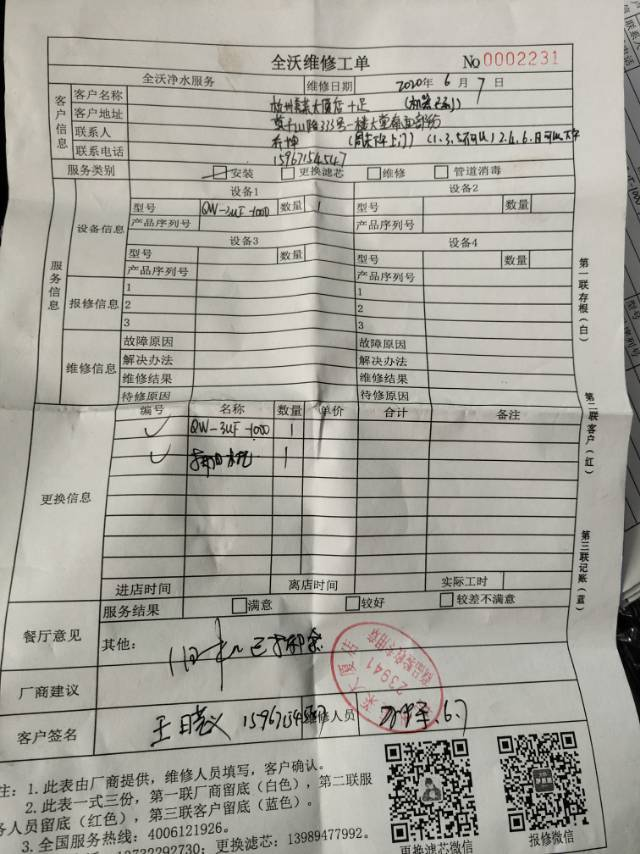 全沃维修工单
No 0002231
全沃净水服务 维修日期 2020年6月7日
客户信息
客户名称
客户地址 莫干山路333号一楼大堂
联系人
联系电话 15967154547
服务类别 安装 更换滤芯 维修 管道消毒
服务信息
设备信息
设备1 设备2
型号 QW-3UF-1000 数量 1 型号 数量
产品序列号 产品序列号
设备3 设备4
型号 数量 型号 数量
产品序列号 产品序列号
报修信息
1 1
2 2
3 3
维修信息
故障原因 故障原因
解决办法 解决办法
维修结果 维修结果
待修原因 待修原因
更换信息
编号 名称 数量 单价 合计 备注
QW-3UF-1000 1
1
进店时间 离店时间 实际工时
餐厅意见
服务结果 满意 较好 较差不满意
其他:
23941
厂商建议
客户签名 维修人员 6.7
第一联存根(白)
第二联客户(红)
第三联记账(蓝)
注:1.此表由厂商提供,维修人员填写,客户确认。
2.此表一式三份,第一联厂商留底(白色),第二联服
务人员留底(红色),第三联客户留底(蓝色)。
3.全国服务热线:4006121926。
18732292730;更换滤芯:13989477992。
更换滤芯微信 报修微信